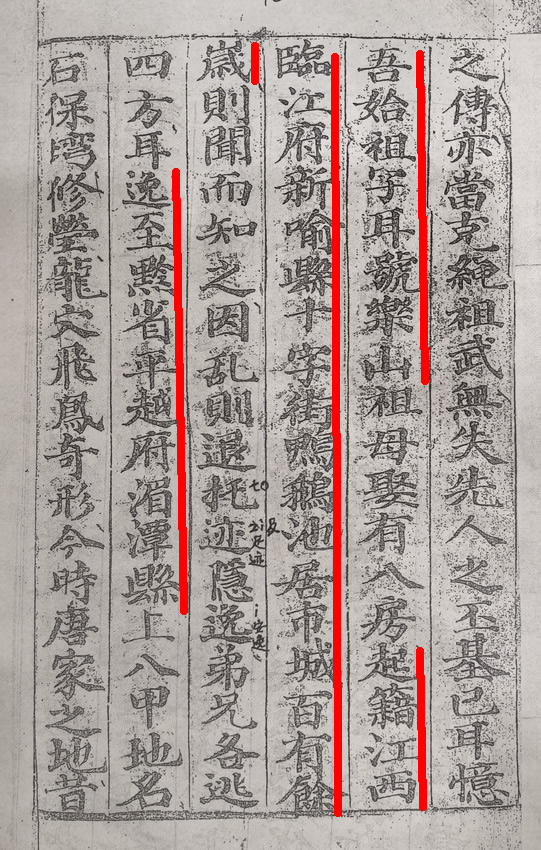 之傳亦當克繩祖武無失先人之丕基已耳憶
吾始祖字耳號樂山祖母娶有八房起籍江西
臨江府新喻縣十字街鴨鵝池居市城百有餘
歲則聞而知之因乱則退托迹隱逸弟兄各逃
四方耳逸至黔省平越府湄潭縣上八甲地名
石保塆修塋龍穴飛鳳奇形今時唐家之地昔